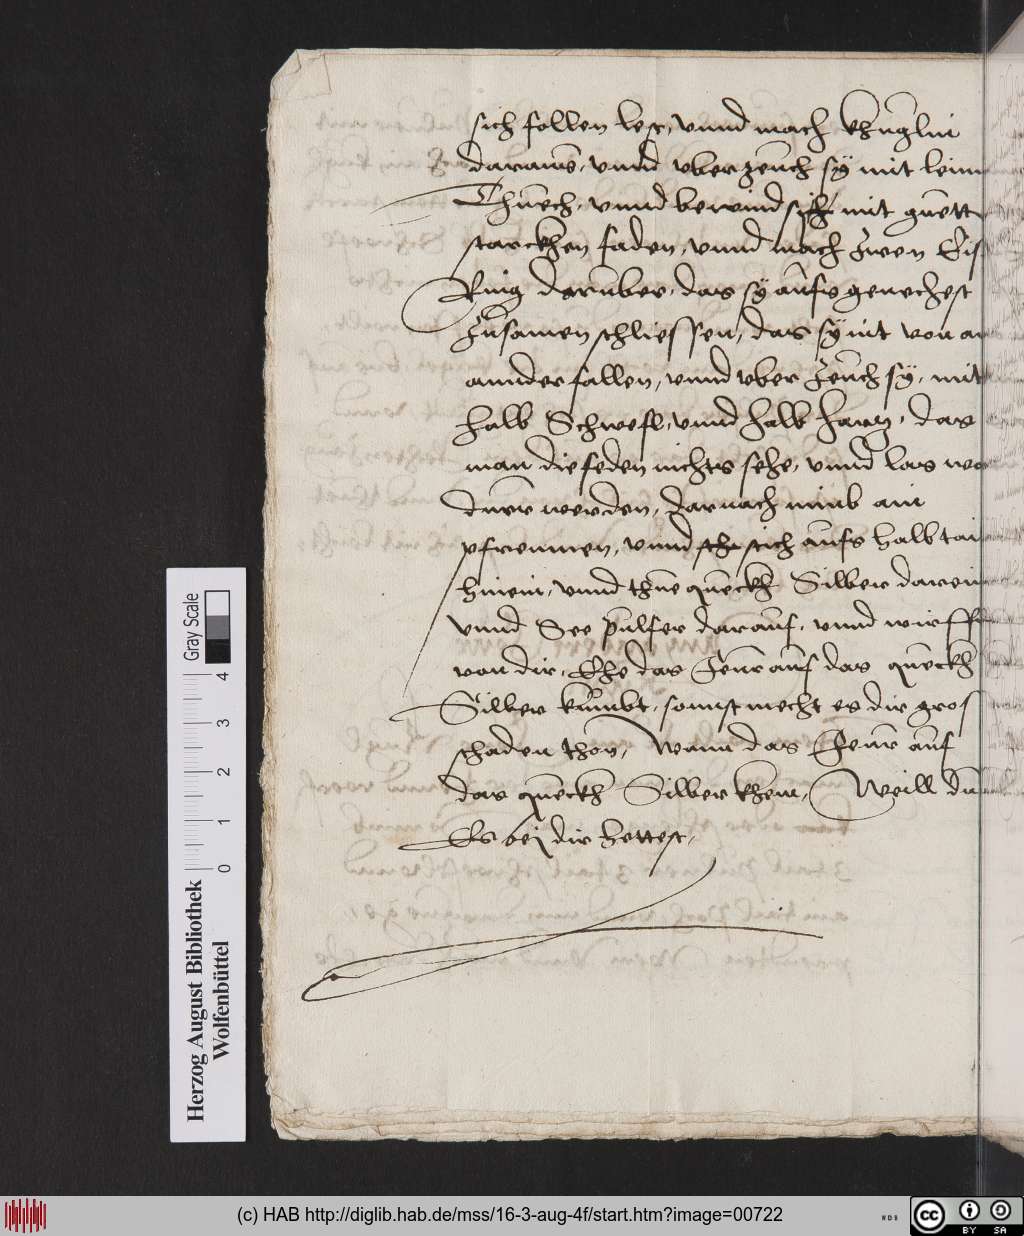 sich follen lest, vnnd mach khuglin
daraus, vnnd vberzeuch sÿ mit leinn
Thuech, vnnd bewind sich mit guett
starckhen faden, vnnd mach zwen Eis
Ring darunber, das sÿ aufs genechest
Zusamen schliessen, das sÿ nit von an
annder fallen, vnnd vber Zeuch sÿ, mit
halb Schwefl, vnnd halb hartz, das
man die feden nichts sehe, vnnd las wo
durr werden, darnach nimb ain
pfreimen, vnnd stich aufs halb tai
hinein, vnnd thue queckh Silber darein
vnnd See pulfer darauf, vnnd wirff
von dir, Ehe das Feur auf das queckh
Silber kumbt, sonnst mecht es dir gros
schaden thon, Wann das Feur auf
das queckh Silber khem, Weill du
Es beÿ dir hettest,
Gray Scale
0 1 2 3 4
Herzog August Bibliothek
Wolfenbüttel
(c) HAB http://diglib.hab.de/mss/16-3-aug-4f/start.htm?image=00722
WDB
cc
BY SA